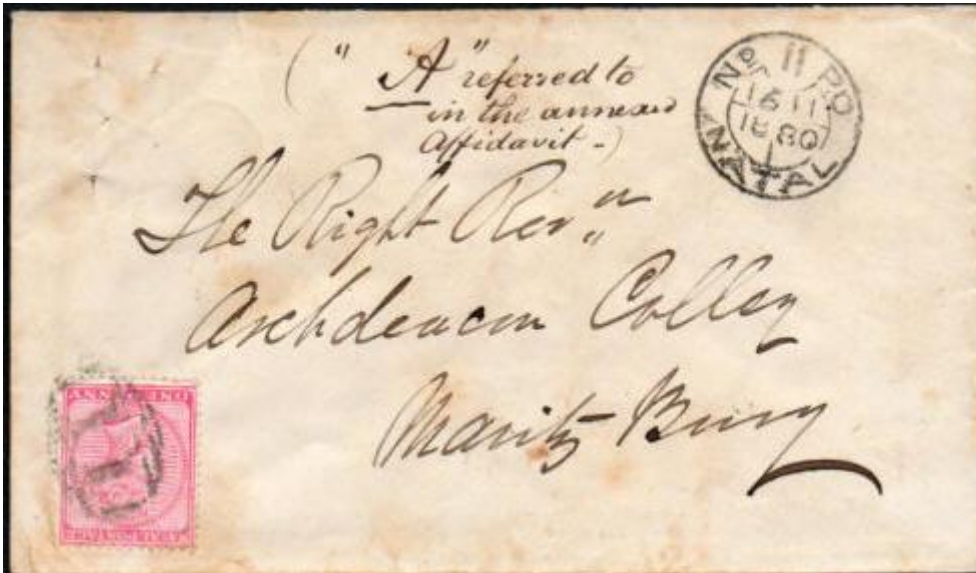 (" A " referred to
in the annexed
Affidavit - )
No. 11 P.O
16 11
1880
NATAL
The Right Rev"
Archdeacon Colley
Maritz Burg
ONE PENNY
NATAL POSTAGE